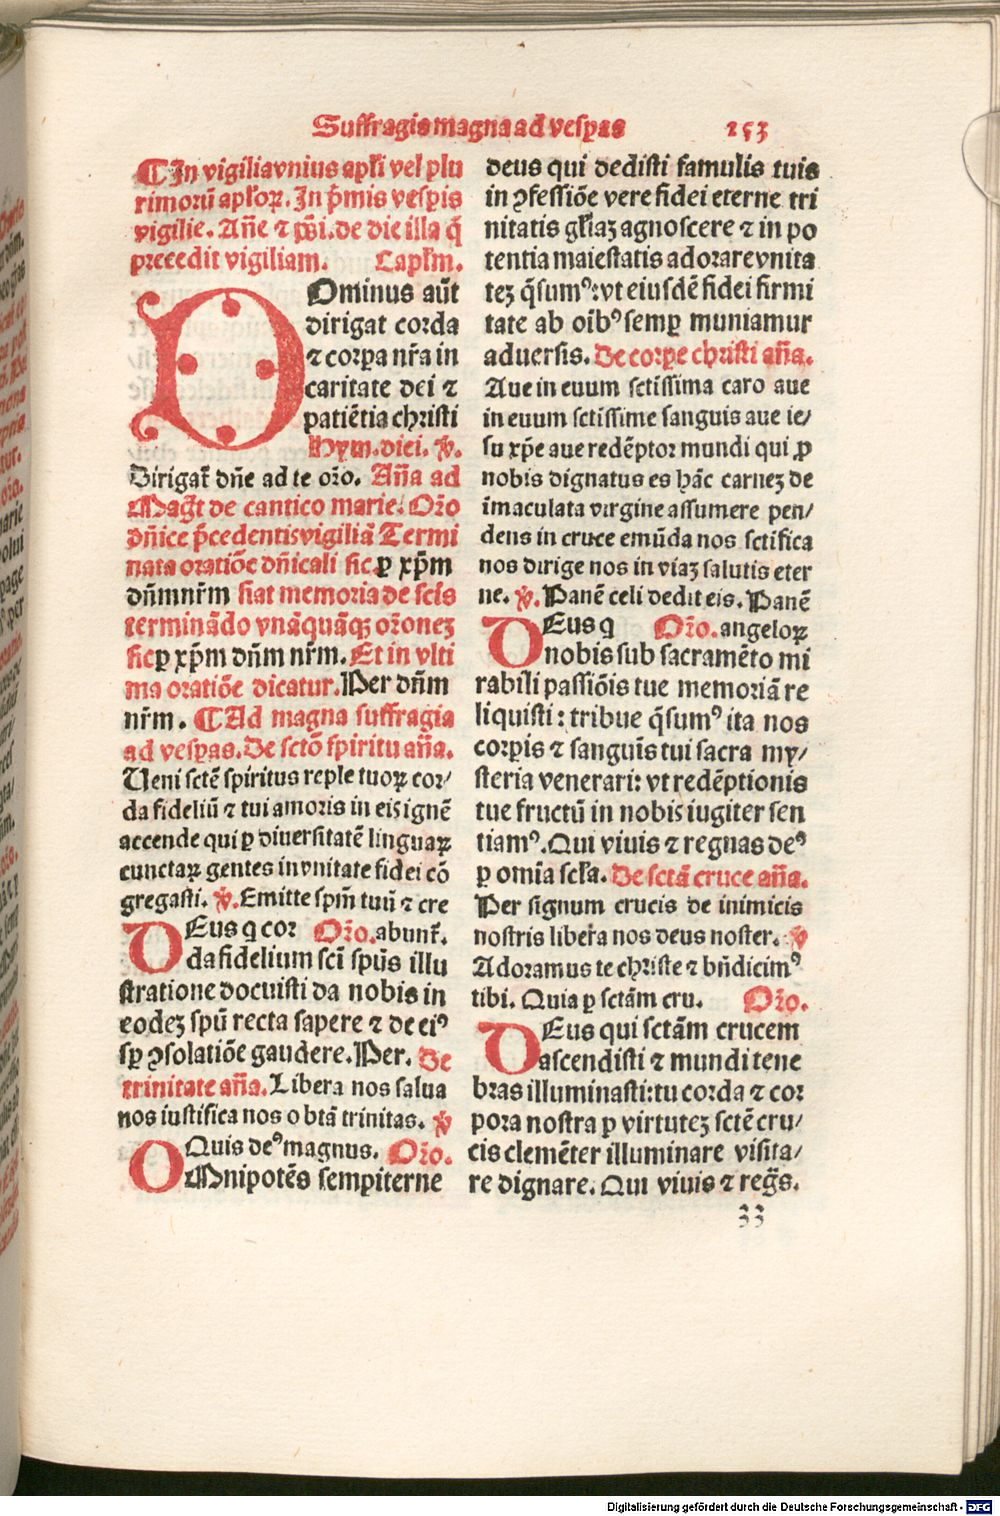 Suffragia magna ad vesp̱as 253
¶In vigilia vnius apl̓i vel plu
rimorū apl̓oꝝ. In p̄mis vesp̱is
vigilie. Añe ⁊ ps̄i. de die illa q̄
precedit vigiliam. Capl̓m.
DOminus aūt
dirigat corda
⁊ corp̱a nr̄a in
caritate dei ⁊
patiētia christi
Hym. diei. ℣.
Dirigat̄ dn̄e ad te or̄o. Añа ad
Magt̄ de cantico marie. Or̄o
dn̄ice p̄cedentis vigiliā Termi
nata oratiōe dn̄icali sic. ꝑ xp̄m
dn̄m nr̄m fiat memoria de sc̄is
terminādo vnāquāqꝫ or̄oneꝫ
sic ꝑ xp̄m dn̄m nr̄m. Et in vlti
ma oratiōe dicatur. Per dn̄m
nr̄m. ¶Ad magna suffragia
ad vesp̱as. De sctō spiritu añа.
Ueni sctē spiritus reple tuoꝝ cor⸗
da fideliū ⁊ tui amoris in eis ignē
accende qui ꝑ diuersitatē linguaꝝ
cunctaꝝ gentes in vnitate fidei cō
gregasti. ℣. Emitte spm̄ tuū ⁊ cre
DEus q cor Or̄o. abunt̄.
da fidelium scī spūs illu
stratione docuisti da nobis in
eodeꝫ spū recta sapere ⁊ de eiꝰ
sꝑ ꝯsolatiōe gaudere. Per. De
trinitate añа. Libera nos salua
nos iustifica nos o btā trinitas. ℣
Quis deꝰ magnus. Or̄o.
OMnipotēs sempiterne
deus qui dedisti famulis tuis
in ꝯfessiōe vere fidei eterne tri
nitatis gl̓iaꝫ agnoscere ⁊ in po
tentia maiestatis adorare vnita
teꝫ q̄sumꝰ: vt eiusdē fidei firmi
tate ab oīb⁹ semꝑ muniamur
aduersis. De corp̱e christi añа.
Aue in euum sctissima caro aue
in euum sctissime sanguis aue ie⸗
su xp̄e aue redēptor mundi qui ꝓ
nobis dignatus es hāc carneꝫ de
īmaculata virgine assumere pen⸗
dens in cruce emūda nos sctifica
nos dirige nos in viaꝫ salutis eter
ne. ℣. Panē celi dedit eis. Panē
DEus q Or̄o. angeloꝝ
nobis sub sacramēto mi
rabili passiōis tue memoriā re
liquisti: tribue q̄sumꝰ ita nos
corp̱is ⁊ sanguīs tui sacra my⸗
steria venerari: vt redēptionis
tue fructū in nobis iugiter sen
tiamꝰ. Qui viuis ⁊ regnas deꝰ
ꝑ omīa scl̓a. De sctā cruce añа.
Per signum crucis de inimicis
nostris liber̄a nos deus noster. ℣
Adoramus te christe ⁊ bn̄dicimꝰ
tibi. Quia ꝑ sctām cru. Or̄o.
DEus qui sctām crucem
ascendisti ⁊ mundi tene
bras illuminasti: tu corda ⁊ cor
pora nostra ꝑ virtuteꝫ sctē cru⸗
cis clemēter illuminare visita⸗
re dignare. Qui viuis ⁊ reg̃s.
33
Digitalisierung gefördert durch die Deutsche Forschungsgemeinschaft - DFG